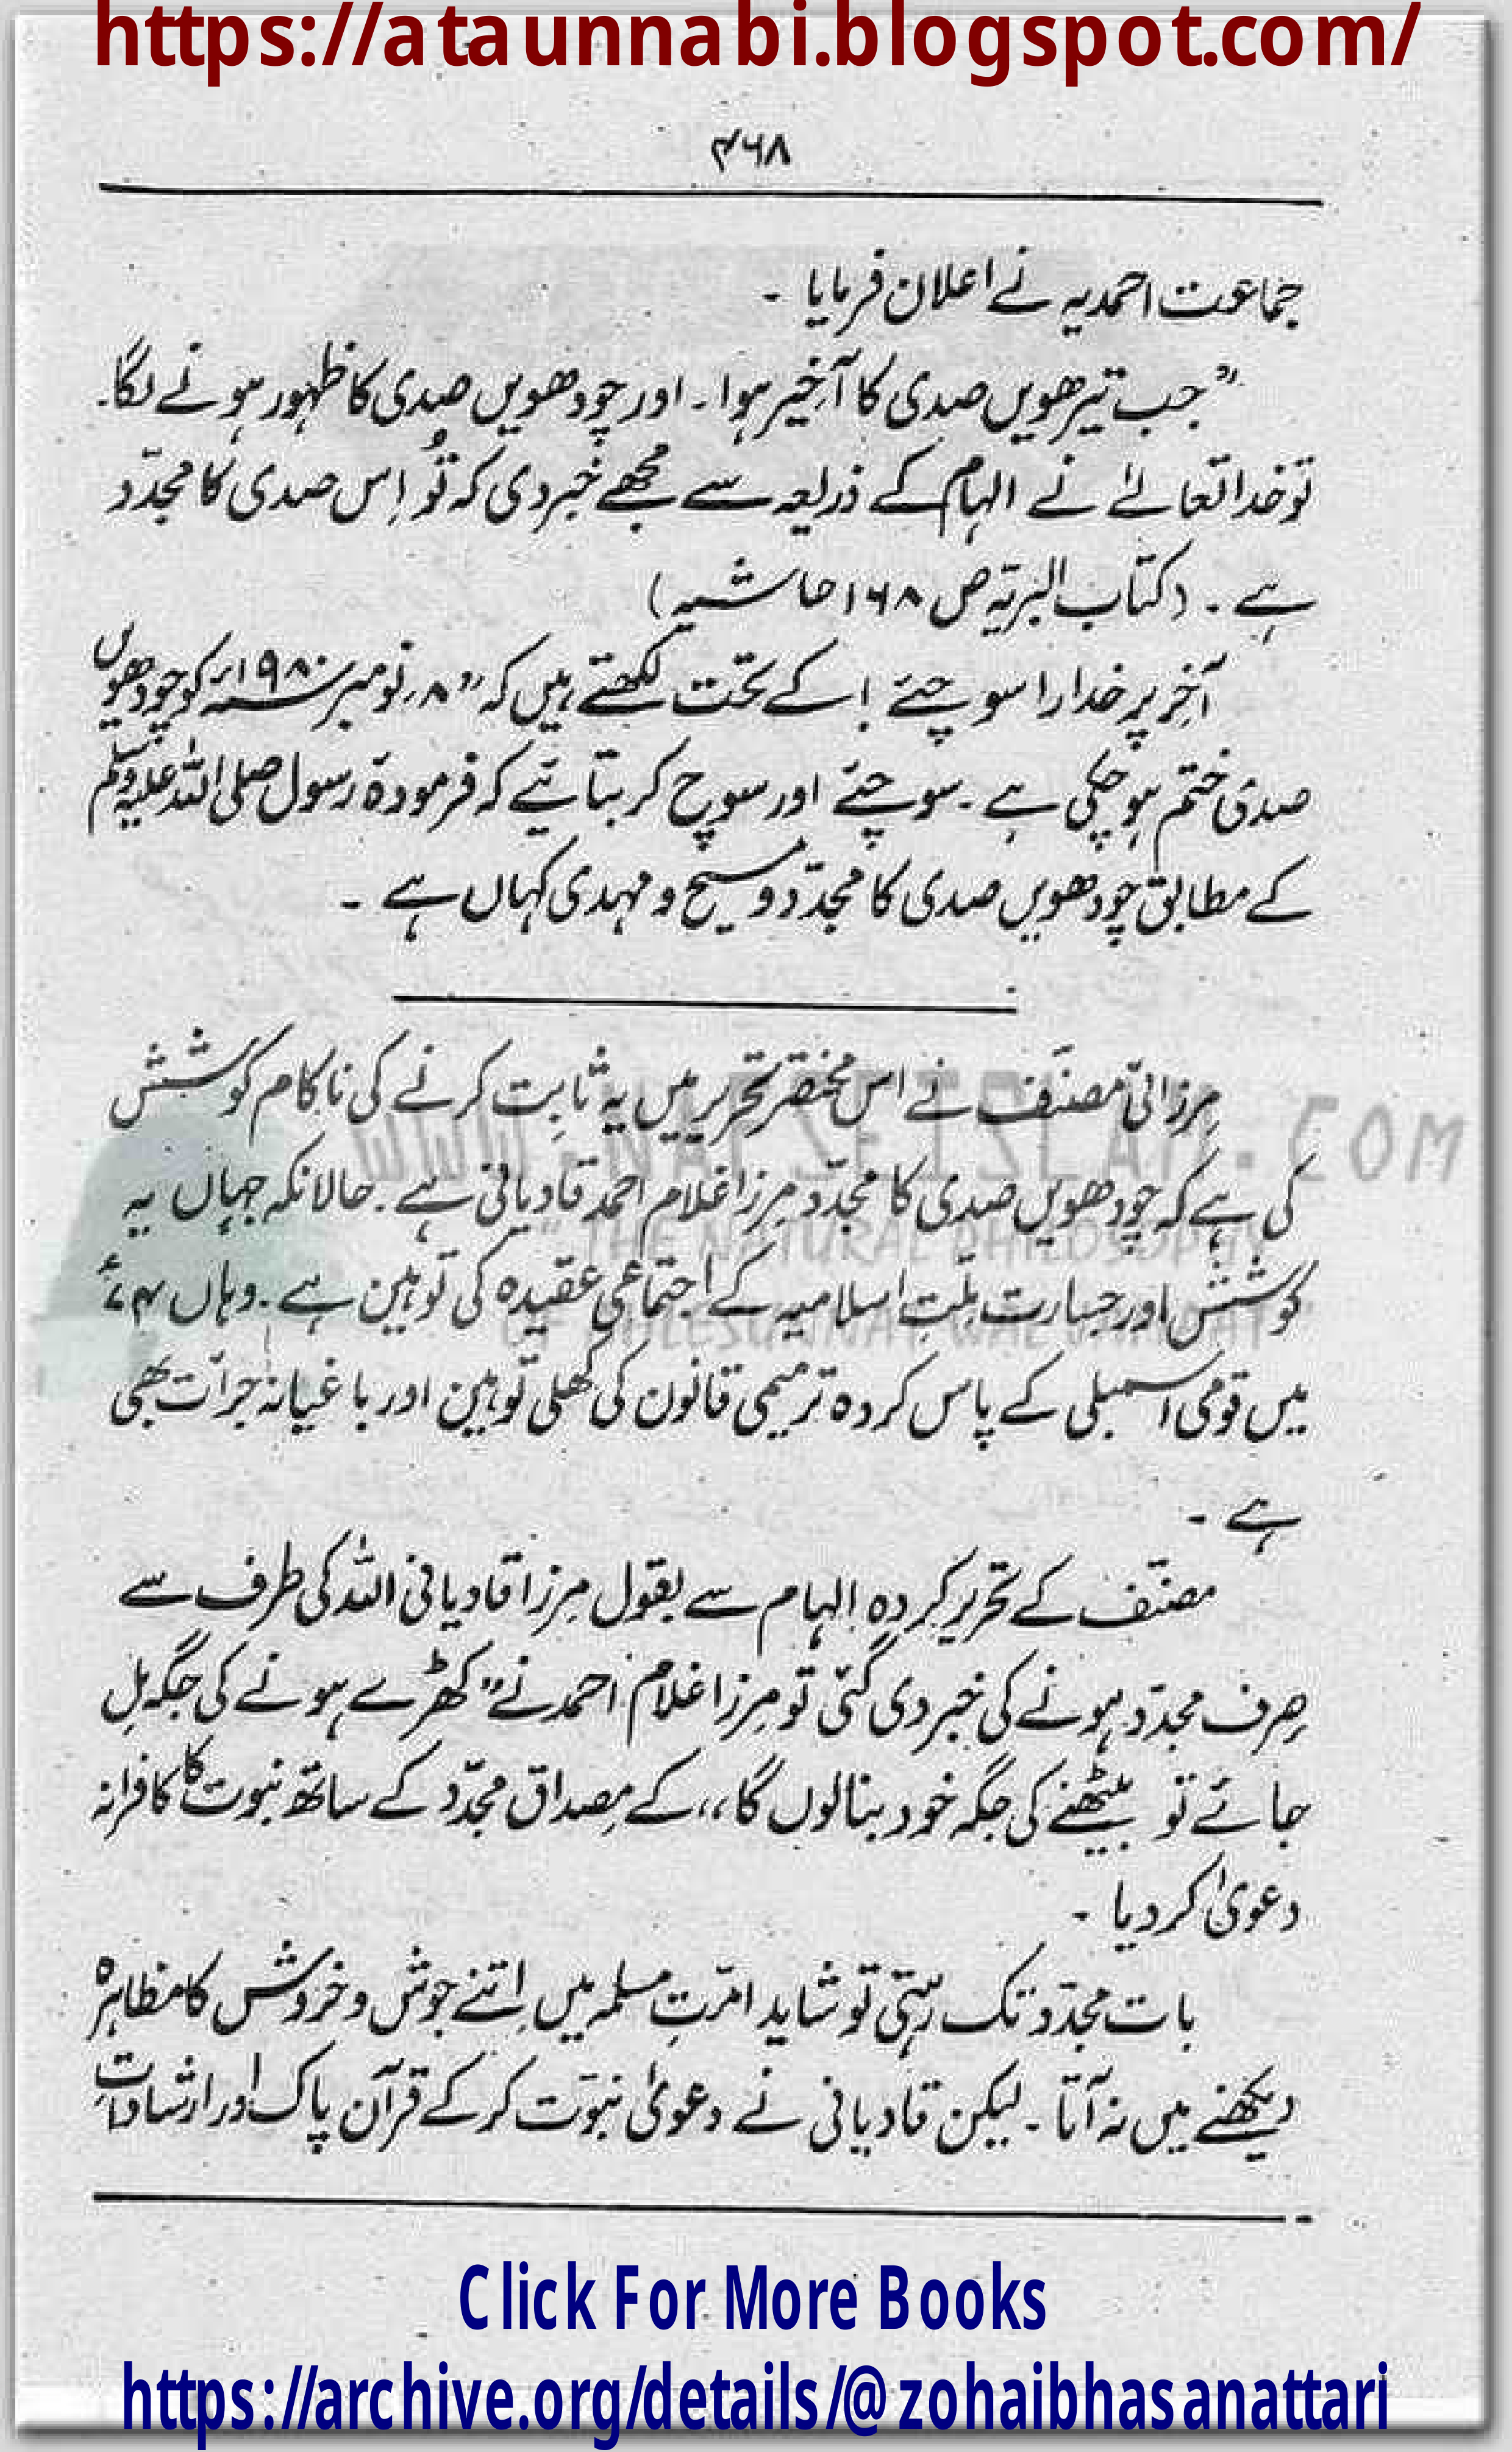 https://ataunnabi.blogspot.com/
۴۶۸
جماعت احمدیہ نے اعلان فرمایا ۔
”جب تیرھویں صدی کا آخیر ہوا ۔ اور چودھویں صدی کا ظہور ہونے لگا۔
تو خدا تعالےٰ نے الہام کے ذریعہ سے مجھے خبر دی کہ تُو اِس صدی کا مجدّد
ہے ۔ (کتاب البریّہ ص ۱۶۸ حاشیہ)
آخِر پر خدارا سوچئے ! کے تحت لکھتے ہیں کہ ”۸ر نومبر ۱۹۸۰ء کو چودھویں
صدی ختم ہو چکی ہے ۔ سوچئے اور سوچ کر بتائیے کہ فرمودۂ رسول صلی اللہ علیہ وسلم
کے مطابق چودھویں صدی کا مجدّد و مسیح و مہدی کہاں ہے ۔
مرزائی مصنّف نے اس مختصر تحریر میں یہ ثابت کرنے کی ناکام کوشش
کی ہے کہ چودھویں صدی کا مجدّد مرزا غلام احمد قادیانی ہے ۔ حالانکہ جہاں یہ
کوشش اور جسارت ملّتِ اسلامیہ کے اجتماعی عقیدہ کی توہین ہے ۔ وہاں ۷۴ء
میں قومی اسمبلی کے پاس کردہ ترمیمی قانون کی کھلی توہین اور باغیانہ جرأت بھی
ہے ۔
مصنّف کے تحریر کردہ الہام سے بقول مرزا قادیانی اللہ کی طرف سے
صِرف مجدّد ہونے کی خبر دی گئی تو مرزا غلام احمد نے ”کھڑے ہونے کی جگہ مِل
جائے تو بیٹھنے کی جگہ خود بنا لوں گا،، کے مِصداق مجدّد کے ساتھ نبوت کا کافرانہ
دعویٰ کر دیا ۔
بات مجدّد تک رہتی تو شاید امّتِ مسلمہ میں اِتنے جوش و خروش کا مظاہرہ
دیکھنے میں نہ آتا ۔ لیکن قادیانی نے دعویٰ نبوّت کر کے قرآن پاک اور ارشاداتِ
WWW.NAFSEISLAM.COM
"THE NATURAL PHILOSOPHY
OF AHLESUNNAT WAL JAMAAT"
Click For More Books
https://archive.org/details/@zohaibhasanattari